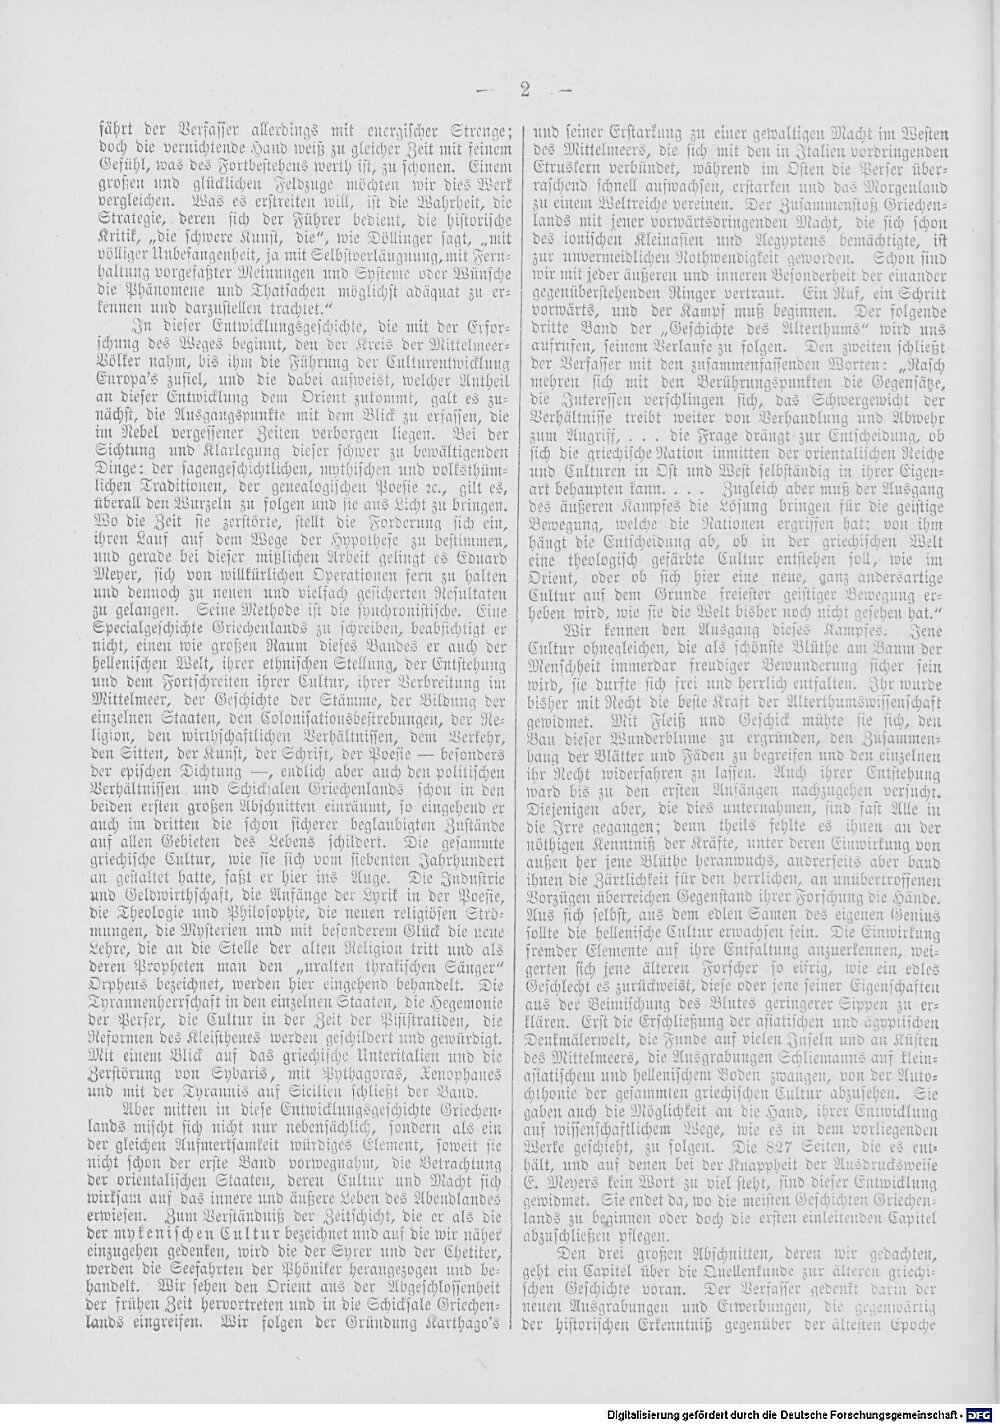 — 2 —
fährt der Verfasser allerdings mit energischer Strenge;
doch die vernichtende Hand weiß zu gleicher Zeit mit feinem
Gefühl, was des Fortbestehens werth ist, zu schonen. Einem
großen und glücklichen Feldzuge möchten wir dies Werk
vergleichen. Was es erstreiten will, ist die Wahrheit, die
Strategie, deren sich der Führer bedient, die historische
Kritik, „die schwere Kunst, die“, wie Döllinger sagt, „mit
völliger Unbefangenheit, ja mit Selbstverläugnung, mit Fern-
haltung vorgefaßter Meinungen und Systeme oder Wünsche
die Phänomene und Thatsachen möglichst adäquat zu er-
kennen und darzustellen trachtet.“
In dieser Entwicklungsgeschichte, die mit der Erfor-
schung des Weges beginnt, den der Kreis der Mittelmeer-
Völker nahm, bis ihm die Führung der Culturentwicklung
Europa's zufiel, und die dabei aufweist, welcher Antheil
an dieser Entwicklung dem Orient zukommt, galt es zu-
nächst, die Ausgangspunkte mit dem Blick zu erfassen, die
im Nebel vergessener Zeiten verborgen liegen. Bei der
Sichtung und Klarlegung dieser schwer zu bewältigenden
Dinge: der sagengeschichtlichen, mythischen und volksthüm-
lichen Traditionen, der genealogischen Poesie ꝛc., gilt es,
überall den Wurzeln zu folgen und sie ans Licht zu bringen.
Wo die Zeit sie zerstörte, stellt die Forderung sich ein,
ihren Lauf auf dem Wege der Hypothese zu bestimmen,
und gerade bei dieser mißlichen Arbeit gelingt es Eduard
Meyer, sich von willkürlichen Operationen fern zu halten
und dennoch zu neuen und vielfach gesicherten Resultaten
zu gelangen. Seine Methode ist die synchronistische. Eine
Specialgeschichte Griechenlands zu schreiben, beabsichtigt er
nicht, einen wie großen Raum dieses Bandes er auch der
hellenischen Welt, ihrer ethnischen Stellung, der Entstehung
und dem Fortschreiten ihrer Cultur, ihrer Verbreitung im
Mittelmeer, der Geschichte der Stämme, der Bildung der
einzelnen Staaten, den Colonisationsbestrebungen, der Re-
ligion, den wirthschaftlichen Verhältnissen, dem Verkehr,
den Sitten, der Kunst, der Schrift, der Poesie — besonders
der epischen Dichtung —, endlich aber auch den politischen
Verhältnissen und Schicksalen Griechenlands schon in den
beiden ersten großen Abschnitten einräumt, so eingehend er
auch im dritten die schon sicherer beglaubigten Zustände
auf allen Gebieten des Lebens schildert. Die gesammte
griechische Cultur, wie sie sich vom siebenten Jahrhundert
an gestaltet hatte, faßt er hier ins Auge. Die Industrie
und Geldwirthschaft, die Anfänge der Lyrik in der Poesie,
die Theologie und Philosophie, die neuen religiösen Strö-
mungen, die Mysterien und mit besonderem Glück die neue
Lehre, die an die Stelle der alten Religion tritt und als
deren Propheten man den „uralten thrakischen Sänger“
Orpheus bezeichnet, werden hier eingehend behandelt. Die
Tyrannenherrschaft in den einzelnen Staaten, die Hegemonie
der Perser, die Cultur in der Zeit der Pisistratiden, die
Reformen des Kleisthenes werden geschildert und gewürdigt.
Mit einem Blick auf das griechische Unteritalien und die
Zerstörung von Sybaris, mit Pythagoras, Xenophanes
und mit der Tyrannis auf Sicilien schließt der Band.
Aber mitten in diese Entwicklungsgeschichte Griechen-
lands mischt sich nicht nur nebensächlich, sondern als ein
der gleichen Aufmerksamkeit würdiges Element, soweit sie
nicht schon der erste Band vorwegnahm, die Betrachtung
der orientalischen Staaten, deren Cultur und Macht sich
wirksam auf das innere und äußere Leben des Abendlandes
erwiesen. Zum Verständniß der Zeitschicht, die er als die
der mykenischen Cultur bezeichnet und auf die wir näher
einzugehen gedenken, wird die der Syrer und der Chetiter,
werden die Seefahrten der Phöniker herangezogen und be-
handelt. Wir sehen den Orient aus der Abgeschlossenheit
der frühen Zeit hervortreten und in die Schicksale Griechen-
lands eingreifen. Wir folgen der Gründung Karthago's
und seiner Erstarkung zu einer gewaltigen Macht im Westen
des Mittelmeers, die sich mit den in Italien vordringenden
Etruskern verbündet, während im Osten die Perser über-
raschend schnell aufwachsen, erstarken und das Morgenland
zu einem Weltreiche vereinen. Der Zusammenstoß Griechen-
lands mit jener vorwärtsdringenden Macht, die sich schon
des ionischen Kleinasien und Aegyptens bemächtigte, ist
zur unvermeidlichen Nothwendigkeit geworden. Schon sind
wir mit jeder äußeren und inneren Besonderheit der einander
gegenüberstehenden Ringer vertraut. Ein Ruf, ein Schritt
vorwärts, und der Kampf muß beginnen. Der folgende
dritte Band der „Geschichte des Alterthums“ wird uns
aufrufen, seinem Verlaufe zu folgen. Den zweiten schließt
der Verfasser mit den zusammenfassenden Worten: „Rasch
mehren sich mit den Berührungspunkten die Gegensätze,
die Interessen verschlingen sich, das Schwergewicht der
Verhältnisse treibt weiter von Verhandlung und Abwehr
zum Angriff, . . . die Frage drängt zur Entscheidung, ob
sich die griechische Nation inmitten der orientalischen Reiche
und Culturen in Ost und West selbständig in ihrer Eigen-
art behaupten kann. . . . Zugleich aber muß der Ausgang
des äußeren Kampfes die Lösung bringen für die geistige
Bewegung, welche die Nationen ergriffen hat: von ihm
hängt die Entscheidung ab, ob in der griechischen Welt
eine theologisch gefärbte Cultur entstehen soll, wie im
Orient, oder ob sich hier eine neue, ganz andersartige
Cultur auf dem Grunde freiester geistiger Bewegung er-
heben wird, wie sie die Welt bisher noch nicht gesehen hat.“
Wir kennen den Ausgang dieses Kampfes. Jene
Cultur ohnegleichen, die als schönste Blüthe am Baum der
Menschheit immerdar freudiger Bewunderung sicher sein
wird, sie durfte sich frei und herrlich entfalten. Ihr wurde
bisher mit Recht die beste Kraft der Alterthumswissenschaft
gewidmet. Mit Fleiß und Geschick mühte sie sich, den
Bau dieser Wunderblume zu ergründen, den Zusammen-
hang der Blätter und Fäden zu begreifen und den einzelnen
ihr Recht widerfahren zu lassen. Auch ihrer Entstehung
ward bis zu den ersten Anfängen nachzugehen versucht.
Diejenigen aber, die dies unternahmen, sind fast Alle in
die Irre gegangen; denn theils fehlte es ihnen an der
nöthigen Kenntniß der Kräfte, unter deren Einwirkung von
außen her jene Blüthe heranwuchs, andrerseits aber band
ihnen die Zärtlichkeit für den herrlichen, an unübertroffenen
Vorzügen überreichen Gegenstand ihrer Forschung die Hände.
Aus sich selbst, aus dem edlen Samen des eigenen Genius
sollte die hellenische Cultur erwachsen sein. Die Einwirkung
fremder Elemente auf ihre Entfaltung anzuerkennen, wei-
gerten sich jene älteren Forscher so eifrig, wie ein edles
Geschlecht es zurückweist, diese oder jene seiner Eigenschaften
aus der Beimischung des Blutes geringerer Sippen zu er-
klären. Erst die Erschließung der asiatischen und ägyptischen
Denkmälerwelt, die Funde auf vielen Inseln und an Küsten
des Mittelmeers, die Ausgrabungen Schliemanns auf klein-
asiatischem und hellenischem Boden zwangen, von der Auto-
chthonie der gesammten griechischen Cultur abzusehen. Sie
gaben auch die Möglichkeit an die Hand, ihrer Entwicklung
auf wissenschaftlichem Wege, wie es in dem vorliegenden
Werke geschieht, zu folgen. Die 827 Seiten, die es ent-
hält, und auf denen bei der Knappheit der Ausdrucksweise
E. Meyers kein Wort zu viel steht, sind dieser Entwicklung
gewidmet. Sie endet da, wo die meisten Geschichten Griechen-
lands zu beginnen oder doch die ersten einleitenden Capitel
abzuschließen pflegen.
Den drei großen Abschnitten, deren wir gedachten,
geht ein Capitel über die Quellenkunde zur älteren griechi-
schen Geschichte voran. Der Verfasser gedenkt darin der
neuen Ausgrabungen und Erwerbungen, die gegenwärtig
der historischen Erkenntniß gegenüber der ältesten Epoche
Digitalisierung gefördert durch die Deutsche Forschungsgemeinschaft - DFG